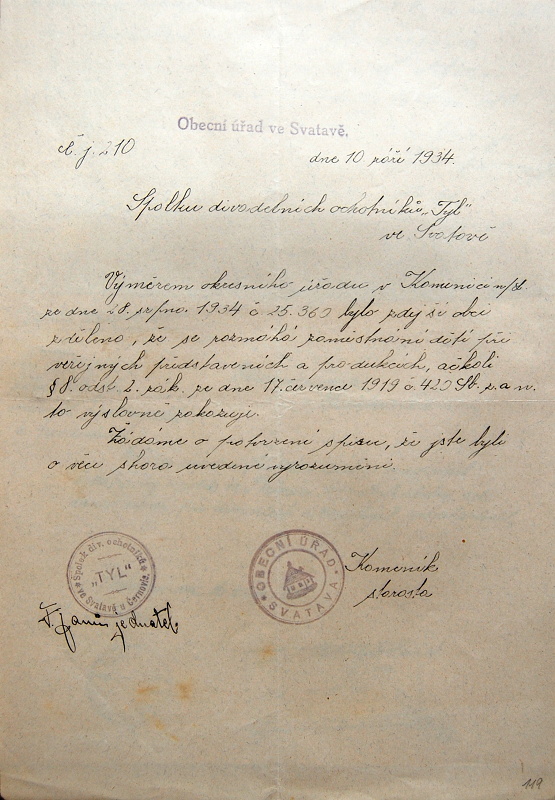 Obecní úřad ve Svatavě.
Č. j. 210
dne 10 září 1934.
Spolku divadelních ochotníků „Tyl“
ve Svatavě
Výměrem okresního úřadu v Kamenici n/L.
ze dne 28. srpna. 1934 č. 25.360 bylo zdejší obci
sděleno, že se rozmáhá zaměstnání dětí při
veřejných představeních a produkcích, ačkoli
§ 8. odst. 2. zák. ze dne 17. července 1919 č. 420 Sb. z. a n.
to výslovně zakazuje.
Žádáme o potvrzení spisu, že jste byli
o věci shora uvedené vyrozuměni.
Spolek div. ochotníků
„TYL“
ve Svatavě u Černovic
OBECNÍ ÚŘAD
SVATAVA
Kameník
starosta
jednatel
119